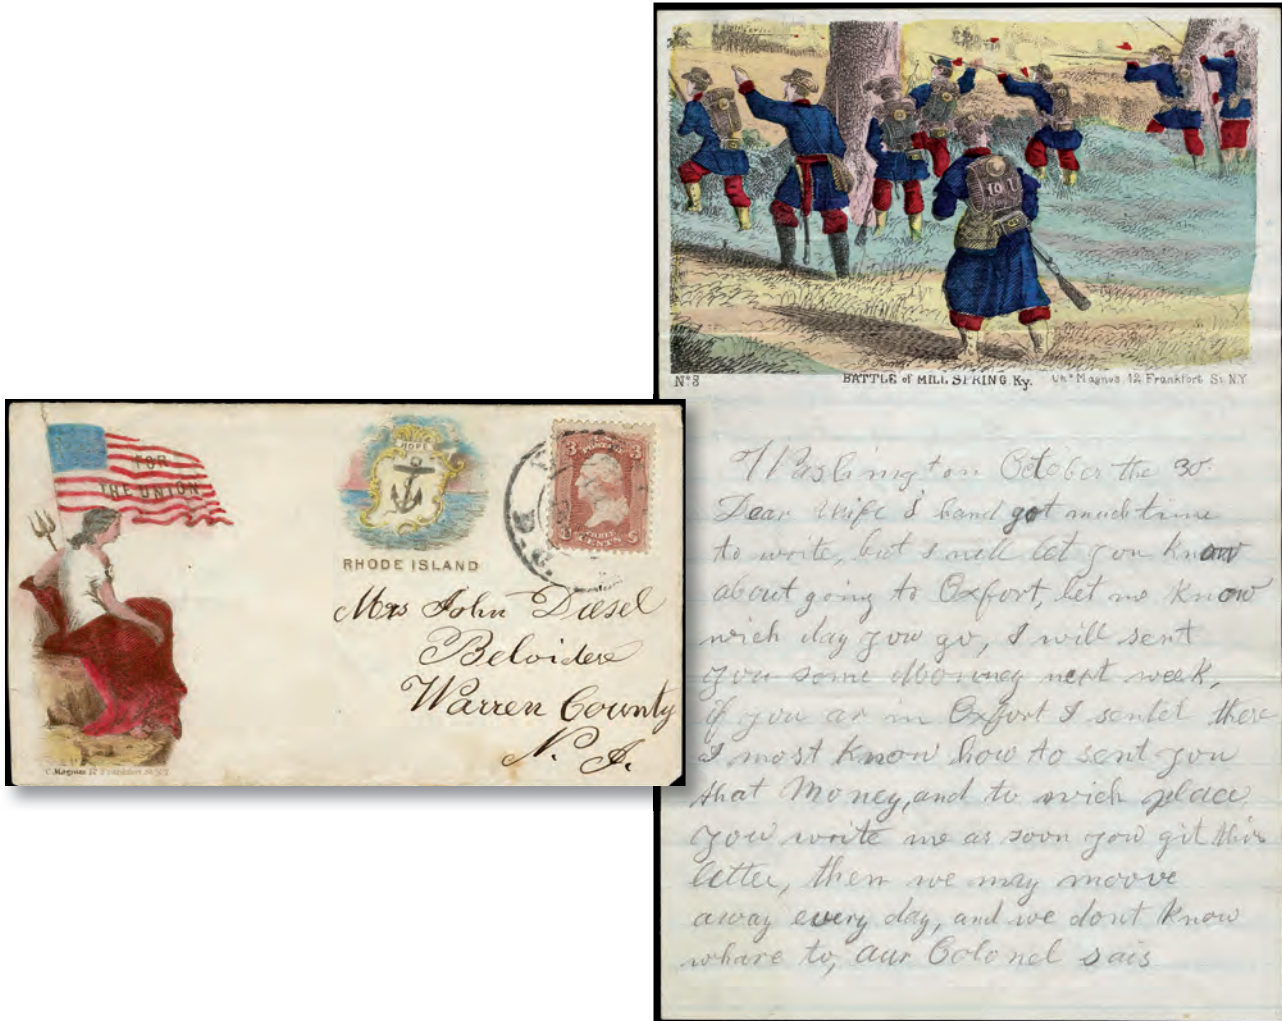 FOR
THE UNION
HOPE
RHODE ISLAND
3 3
THREE
CENTS
Mrs John Diesel
Belvidere
Warren County
N. J.
C. Magnus 12 Frankfort St. N.Y.
10 U
Nº 3
BATTLE of MILL SPRING, Ky.
Chs Magnus, 12 Frankfort St. N.Y
Washington October the 30
Dear Wife I hand got much time
to write, but I will let you know
about going to Oxfort, let me know
wich day you go, I will sent
you some Monney next week,
if you ar in Oxfort I sentet there
I most know how to sent you
that Money, and to wich place
you write me as soon you git this
letter, then we may moove
away every day, and we dont know
whare to, aur Colonel sais